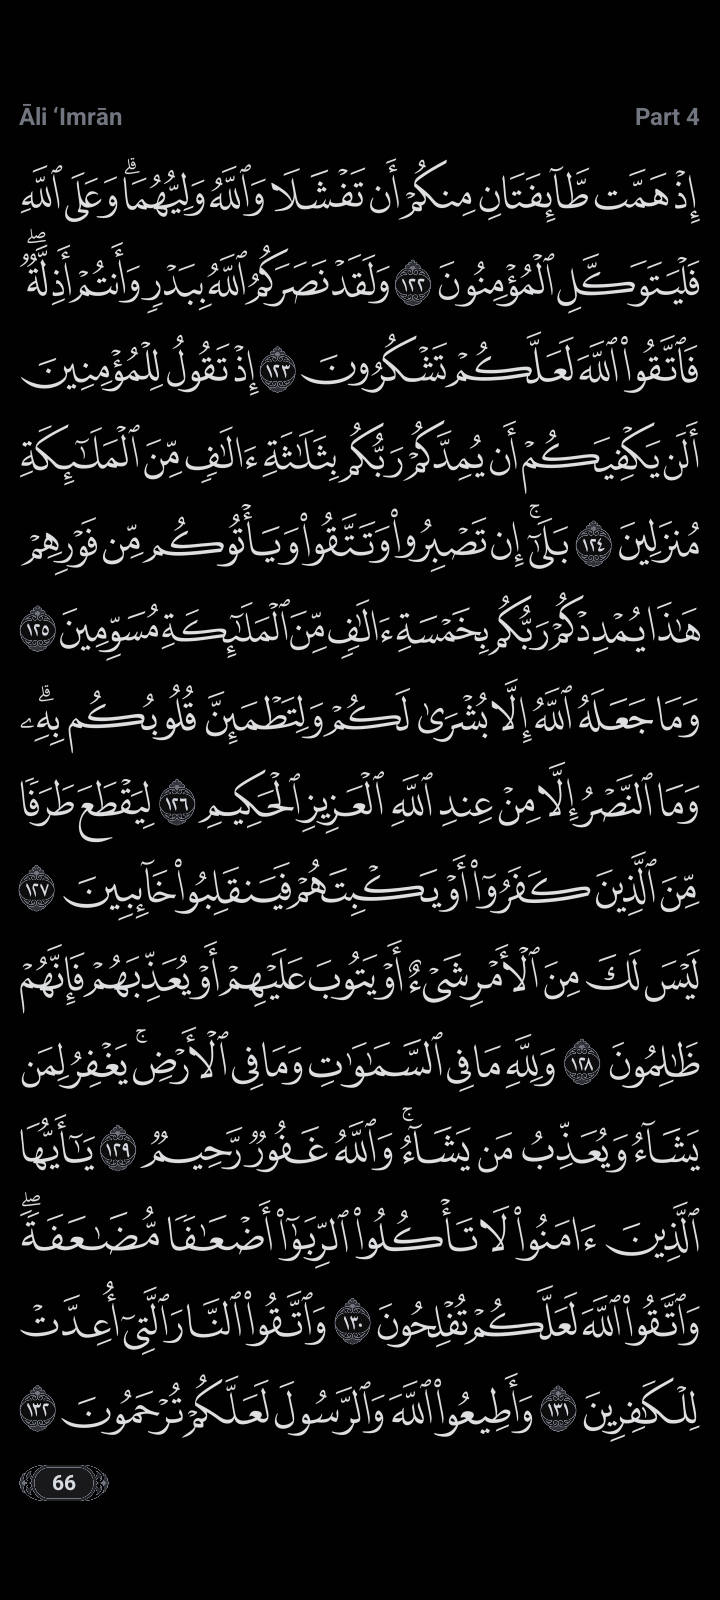 Āli ‘Imrān
Part 4
إِذْ هَمَّت طَّآئِفَتَانِ مِنكُمْ أَن تَفْشَلَا وَٱللَّهُ وَلِيُّهُمَاۗ وَعَلَى ٱللَّهِ
فَلْيَتَوَكَّلِ ٱلْمُؤْمِنُونَ ١٢٢ وَلَقَدْ نَصَرَكُمُ ٱللَّهُ بِبَدْرٍ وَأَنتُمْ أَذِلَّةٌۖ
فَٱتَّقُوا۟ ٱللَّهَ لَعَلَّكُمْ تَشْكُرُونَ ١٢٣ إِذْ تَقُولُ لِلْمُؤْمِنِينَ
أَلَن يَكْفِيَكُمْ أَن يُمِدَّكُمْ رَبُّكُم بِثَلَٰثَةِ ءَالَٰفٍ مِّنَ ٱلْمَلَٰٓئِكَةِ
مُنزَلِينَ ١٢٤ بَلَىٰٓۚ إِن تَصْبِرُوا۟ وَتَتَّقُوا۟ وَيَأْتُوكُم مِّن فَوْرِهِمْ
هَٰذَا يُمْدِدْكُمْ رَبُّكُم بِخَمْسَةِ ءَالَٰفٍ مِّنَ ٱلْمَلَٰٓئِكَةِ مُسَوِّمِينَ ١٢٥
وَمَا جَعَلَهُ ٱللَّهُ إِلَّا بُشْرَىٰ لَكُمْ وَلِتَطْمَئِنَّ قُلُوبُكُم بِهِۦۗ
وَمَا ٱلنَّصْرُ إِلَّا مِنْ عِندِ ٱللَّهِ ٱلْعَزِيزِ ٱلْحَكِيمِ ١٢٦ لِيَقْطَعَ طَرَفًا
مِّنَ ٱلَّذِينَ كَفَرُوٓا۟ أَوْ يَكْبِتَهُمْ فَيَنقَلِبُوا۟ خَآئِبِينَ ١٢٧
لَيْسَ لَكَ مِنَ ٱلْأَمْرِ شَىْءٌ أَوْ يَتُوبَ عَلَيْهِمْ أَوْ يُعَذِّبَهُمْ فَإِنَّهُمْ
ظَٰلِمُونَ ١٢٨ وَلِلَّهِ مَا فِى ٱلسَّمَٰوَٰتِ وَمَا فِى ٱلْأَرْضِۚ يَغْفِرُ لِمَن
يَشَآءُ وَيُعَذِّبُ مَن يَشَآءُۚ وَٱللَّهُ غَفُورٌ رَّحِيمٌ ١٢٩ يَٰٓأَيُّهَا
ٱلَّذِينَ ءَامَنُوا۟ لَا تَأْكُلُوا۟ ٱلرِّبَوٰٓا۟ أَضْعَٰفًا مُّضَٰعَفَةًۖ
وَٱتَّقُوا۟ ٱللَّهَ لَعَلَّكُمْ تُفْلِحُونَ ١٣٠ وَٱتَّقُوا۟ ٱلنَّارَ ٱلَّتِىٓ أُعِدَّتْ
لِلْكَٰفِرِينَ ١٣١ وَأَطِيعُوا۟ ٱللَّهَ وَٱلرَّسُولَ لَعَلَّكُمْ تُرْحَمُونَ ١٣٢
66